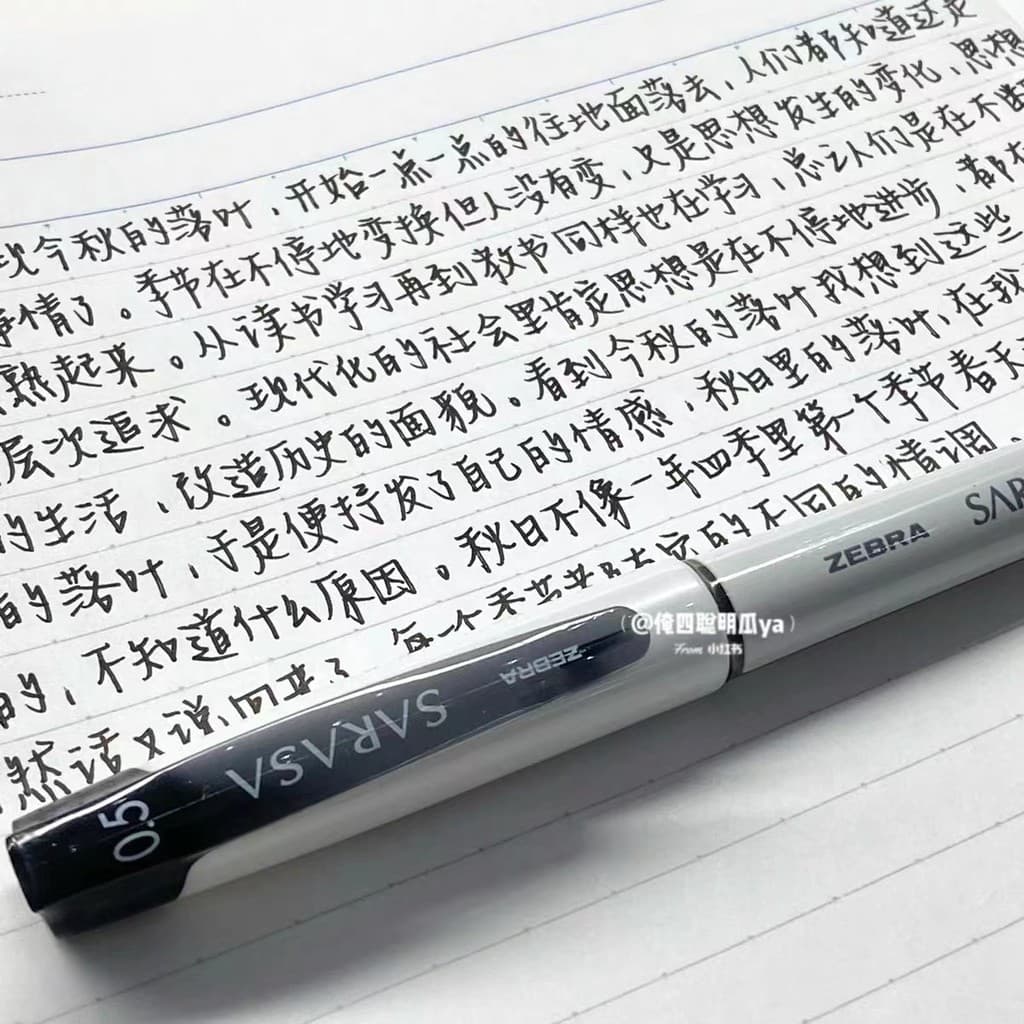 现今秋的落叶，开始一点一点的往地面落去，人们都知道这是
事情了。季节在不停地变换但人没有变，又是思想发生的变化，思想
熟起来。从读书学习再到教书同样也在学习，总之人们是在不断
层次追求。现代化的社会里肯定思想是在不停地进步，都在
的生活，改造历史的面貌。看到今秋的落叶我想到这些
的落叶，于是便抒发了自己的情感，秋日里的落叶，在我
的，不知道什么原因。秋日不像一年四季里第一个季节春天
然话又说回来了 每一个季节 的不同的情调。
ZEBRA SARASA
0.5
ZEBRA SAR
@俺四聪明瓜ya
From 小红书